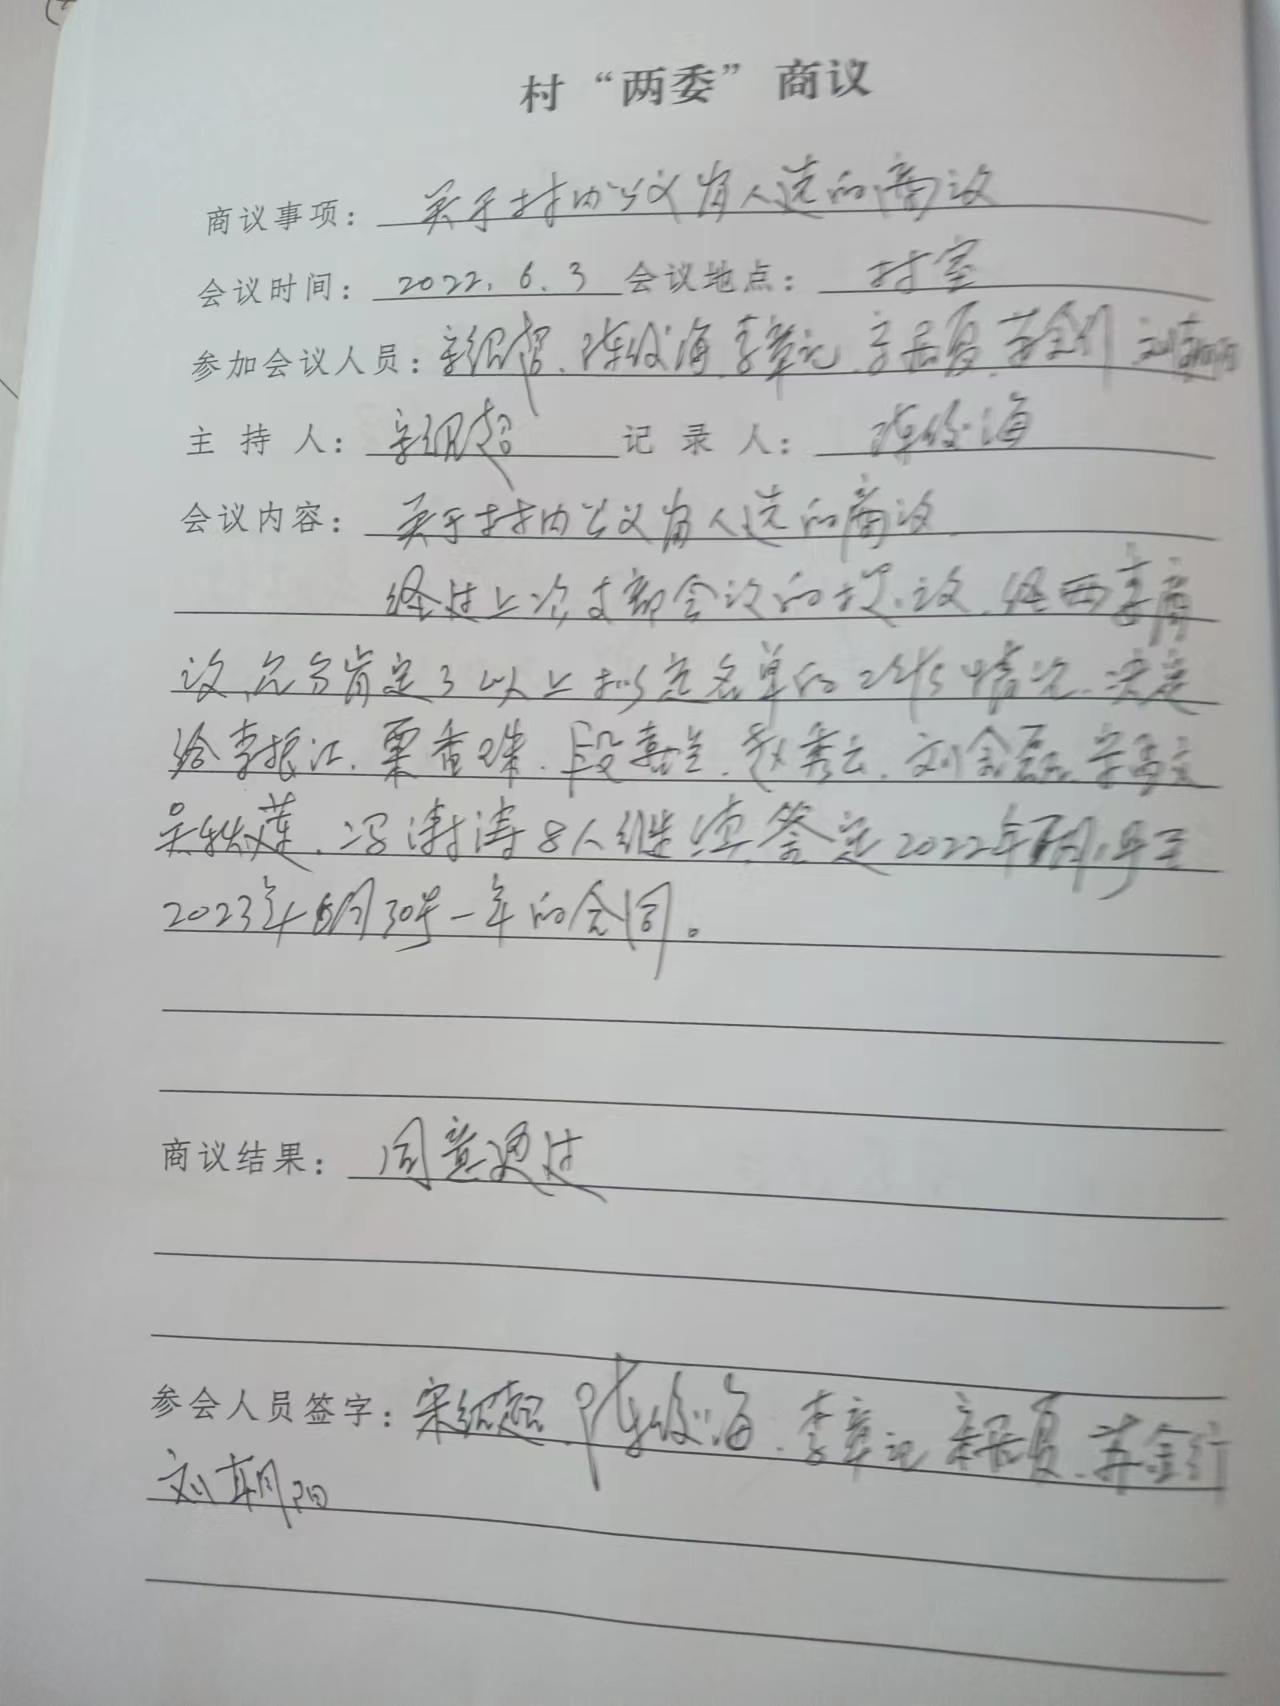 村“两委”商议
商议事项：关于村内公义岗人选的商议
会议时间：2022.6.3 会议地点：村室
参加会议人员：宋绍超、陈俊海、李章记、宋居夏、苏金行 刘朝阳
主持人：宋绍超 记录人：陈俊海
会议内容：关于村内公义岗人选的商议
经过上次支部会议的提议，经两委商
议，充分肯定了以上拟定名单的工作情况，决定
给李振江、栗香珠、段喜兰、赵秀云、刘金磊、宋
吴秋莲、冯涛涛8人继续签定2022年7月1号至
2023年6月30号一年的合同。
商议结果：同意通过
参会人员签字：宋绍超、陈俊海、李章记 宋居夏、苏金行
刘朝阳